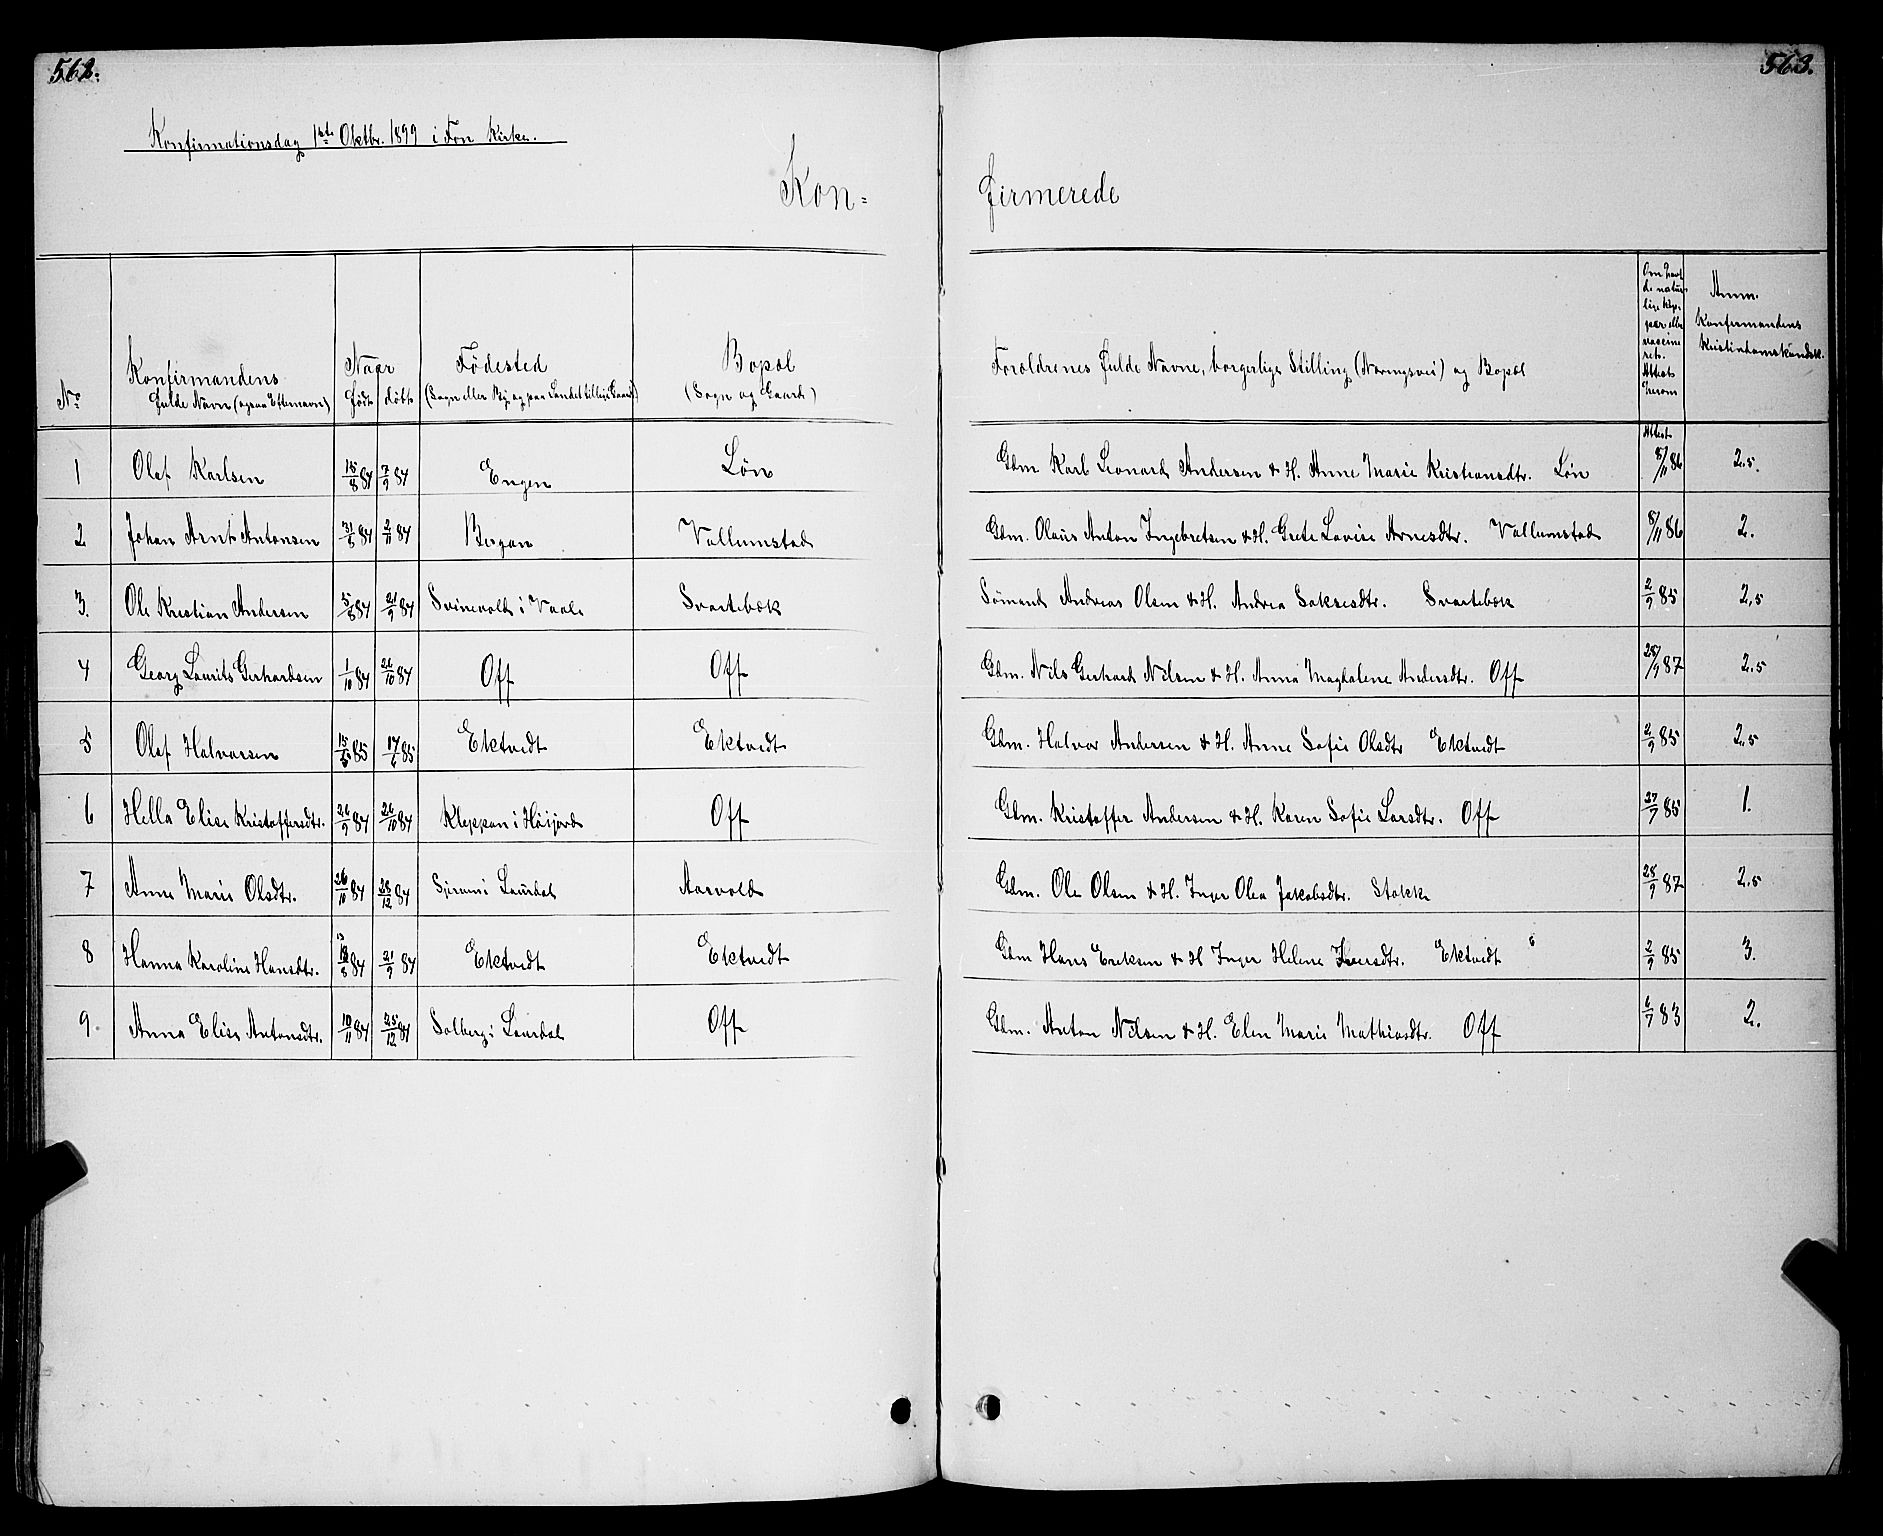 562.
563.
Konfirmationsdag 1ste Oktbr. 1899 i Fon Kirke.
Kon= firmerede
No Konfirmandens fulde Navn (ogsaa Efternavn) Naar født døbt Fødested (Sogn eller By, og paa Landet tillige Gaard) Bopæl (Sogn og Gaard) Forældrenes fulde Navne, borgerlige Stilling (Næringsvei) og Bopæl Attest herom Anm. Konfirmandens Kristendomskundsk.
1 Olaf Karlsen 15/8 84 7/9 84 Engen Løn Gdm Karl Leonard Andersen & H. Anne Marie Kristiansdtr. Løn Attest 8/11 86 2.5.
2 Johan Arnt Antonsen 84 2/11 84 Bergan Vallumstad Gdm. Olaus Anton Ingebretsen & H. Grete Lovise Arnesdtr. Vallumstad 8/11 86 2.
3. Ole Kristian Andersen 5/8 84 21/9 84 Svinevold i Vaale Svartebæk Sømand Andreas Olsen & H. Andrea Saksesdtr. Svartebæk 2/9 85 2.5
4 Georg Laurits Gerhardsen 1/10 84 26/10 84 Off Off Gdm. Nils Gerhard Nilsen & H. Anna Magdalene Andersdtr. Off 28/9 87 2.5
5 Olaf Halvorsen 15/5 85 17/6 85 Ektvedt Ektvedt Gdm. Halvor Andersen & H. Anne Sofie Olsdtr Ektvedt 2/9 85 2.5
6 Hella Elise Kristoffersdtr. 26/9 84 26/10 84 Kleppan i Høijord Off Gdm. Kristoffer Andersen & H. Karen Sofie Larsdtr. Off 27/7 85 1.
7 Anne Marie Olsdtr. 26/10 84 28/12 84 i Laurdal Aarvold Gdm. Ole Olsen & H. Inger Olea Jakobsdtr. Stokke 28/9 87 2.5
8 Hanna Karoline Hansdtr. 13/8 84 21/9 84 Ektvedt Ektvedt Gdm Hans Eriksen & H Inger Helene Iversdtr. Ektvedt 2/9 85 3.
9. Anna Elise Antonsdtr. 10/11 84 25/12 84 Solberg i Laurdal Off Gdm. Anton Nilsen & H. Elen Marie Mathiasdtr. Off 6/7 83 2.